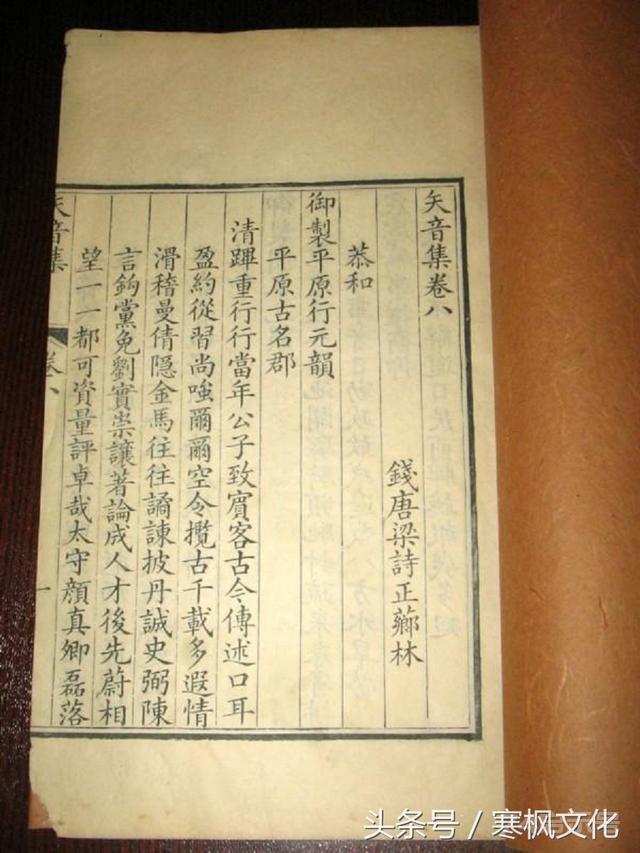 矢音集卷八
錢唐梁詩正薌林
恭和
御製平原行元韻
平原古名郡
清蹕重行行當年公子致賓客古今傳述口耳
盈約從習尚嗤爾爾空令攬古千載多遐情
滑稽曼倩隱金馬往往譎諫披丹誠史弼陳
言鉤黨免劉實崇讓著論成人才後先蔚相
望一一都可資量評卓哉太守顏真卿磊落
矢音集 卷八 一
头条号 / 寒枫文化